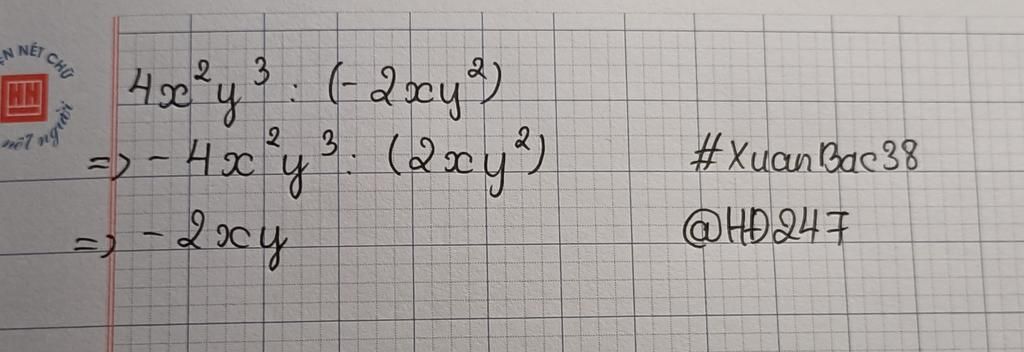 ÈN NÉT CHỮ
HH
nết người
4x²y³ : (-2xy²)
=> -4x²y³ : (2xy²)
#XuanBac38
=> -2xy
@HĐ247